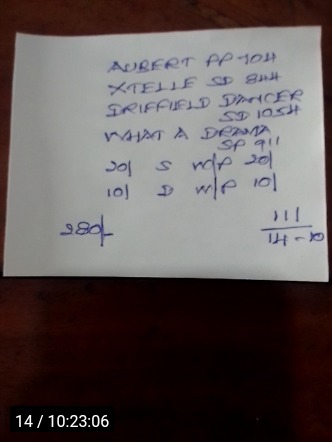 AUBERT PP-704
XTELLE SD 844
DRIFFIELD DANCER
SD 1054
WHAT A DRAMA
SP 911
20/ S W/P 20/
10/ D W/P 10/
280/- 111
14-10
14 / 10:23:06